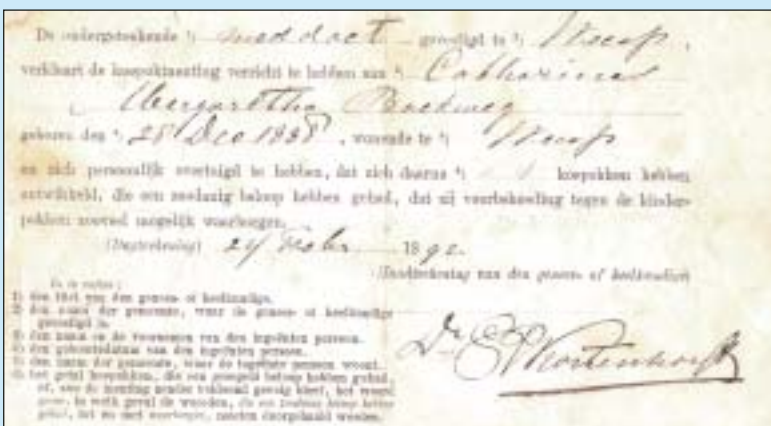 De ondergeteekende 1) med doct gevestigd te 2) Weesp,
verklaart de koepokinenting verricht te hebben aan 3) Catharina
Margaretha
geboren den 4) 28 Dec 1888, wonende te 5) Weesp
en zich persoonlijk overtuigd te hebben, dat zich daarna 6) koepokken hebben
ontwikkeld, die een zoodanig beloop hebben gehad, dat zij voorbehoeding tegen de kinder-
pokken zooveel mogelijk waarborgen.
(Dagteekening) 24 1892.
(Handteekening van den genees- of heelkundige)
In te vullen:
1) den titel van den genees- of heelkundige.
2) den naam der gemeente, waar de genees- of heelkundige
gevestigd is.
3) den naam en de voornamen van den ingeënten persoon.
4) den geboortedatum van den ingeënten persoon.
5) den naam der gemeente, waar de ingeënte persoon woont.
6) het getal koepokken, die een geregeld beloop hebben gehad,
of, zoo de inenting zonder voldoend gevolg bleef, het woord
geene, in welk geval de woorden, die een zoodanig beloop hebben
gehad, tot en met waarborgen, moeten doorgehaald worden.
Dr